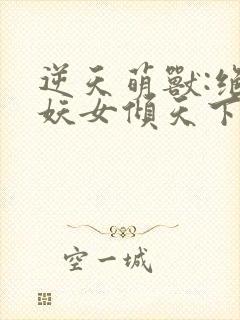 逆天萌獸:絕
妖女傾天下
空一城